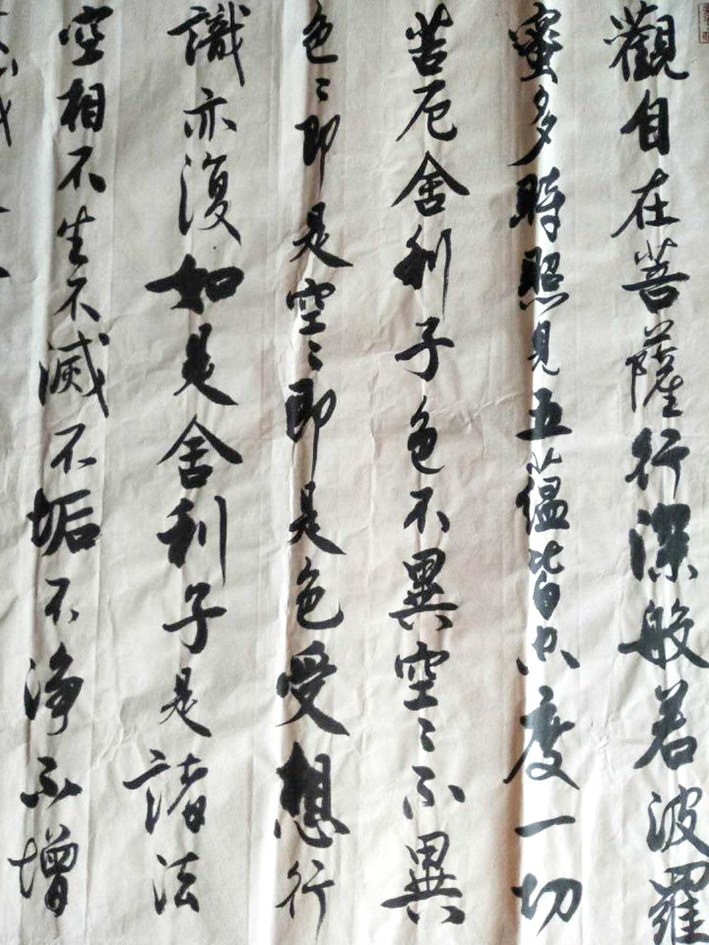 觀自在菩薩行深般若波羅
蜜多時照見五蘊皆空度一切
苦厄舍利子色不異空〻不異
色〻即是空〻即是色受想行
識亦復如是舍利子是諸法
空相不生不滅不垢不净不增